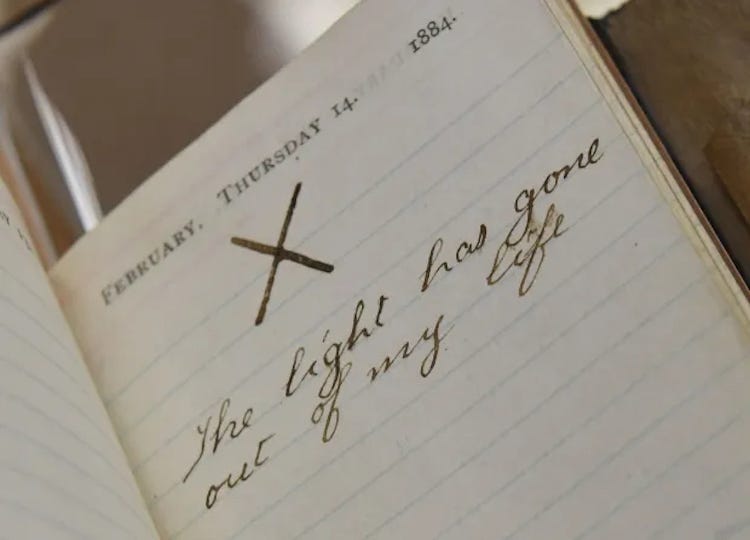 February, Thursday 14. 1884.
X
The light has gone
out of my life